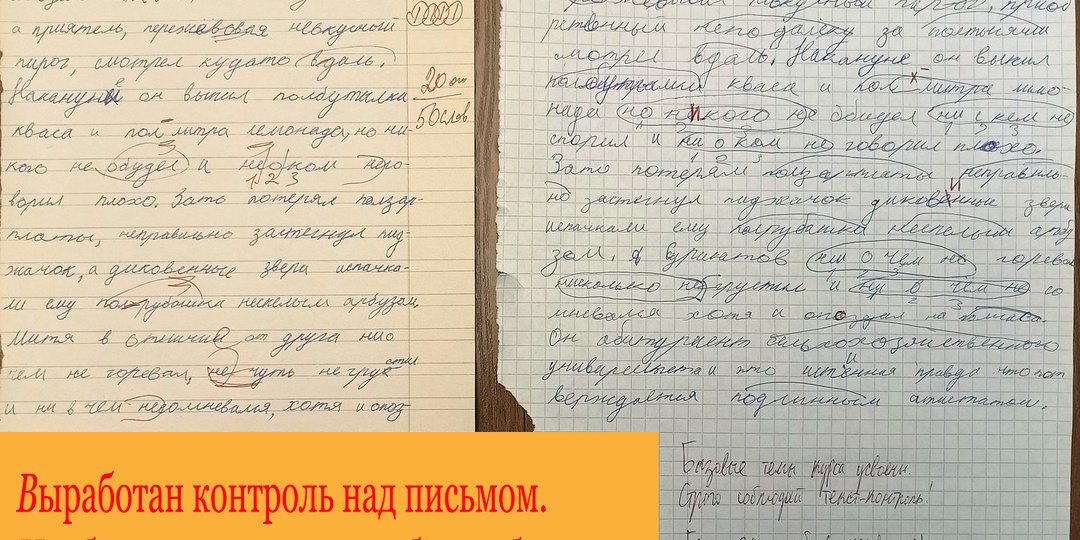 а приятель, пережововая невкусный
пирог, смотрел кудато вдаль.
Накануне он выпил полбутылки
кваса и пол литра лемонада, но ни-
кого не обудел и не о ком него-
ворил плохо. Зато потерял ползар-
платы, неправильно застегнул пид-
жачок, а диковенные звери испачка-
ли ему полрубашки неспелым арбузом.
Митя в отличии от друга нио
чем не горевал, не чуть не грустил
и ни в чем несомневался, хотя и опоз
20 от
50 слов
1 2 3
ретенным неподалёку за постынями
смотрел вдаль. Накануне он выпил
полбутылки кваса и пол литра лимо-
нада но никого не обидел ни с кем не
спорил и ни о ком не говорил плохо.
Зато потерял ползарплаты неправиль-
но застегнул пиджачок диковинные звери
испачкали ему полрубашки неспелым арбу
зом. А бурчатов ни о чем не горевал
нисколько не грустил и ни в чём не со
мневался хотя и опоздал на полчаса.
Он абитуриент сельскохозяйственного
университета и это истинная правда что пот
верждается подлинным аттестатом.
Базовые темы курса усвоены.
Строго соблюдай текст-контроль!
Выработан контроль над письмом.